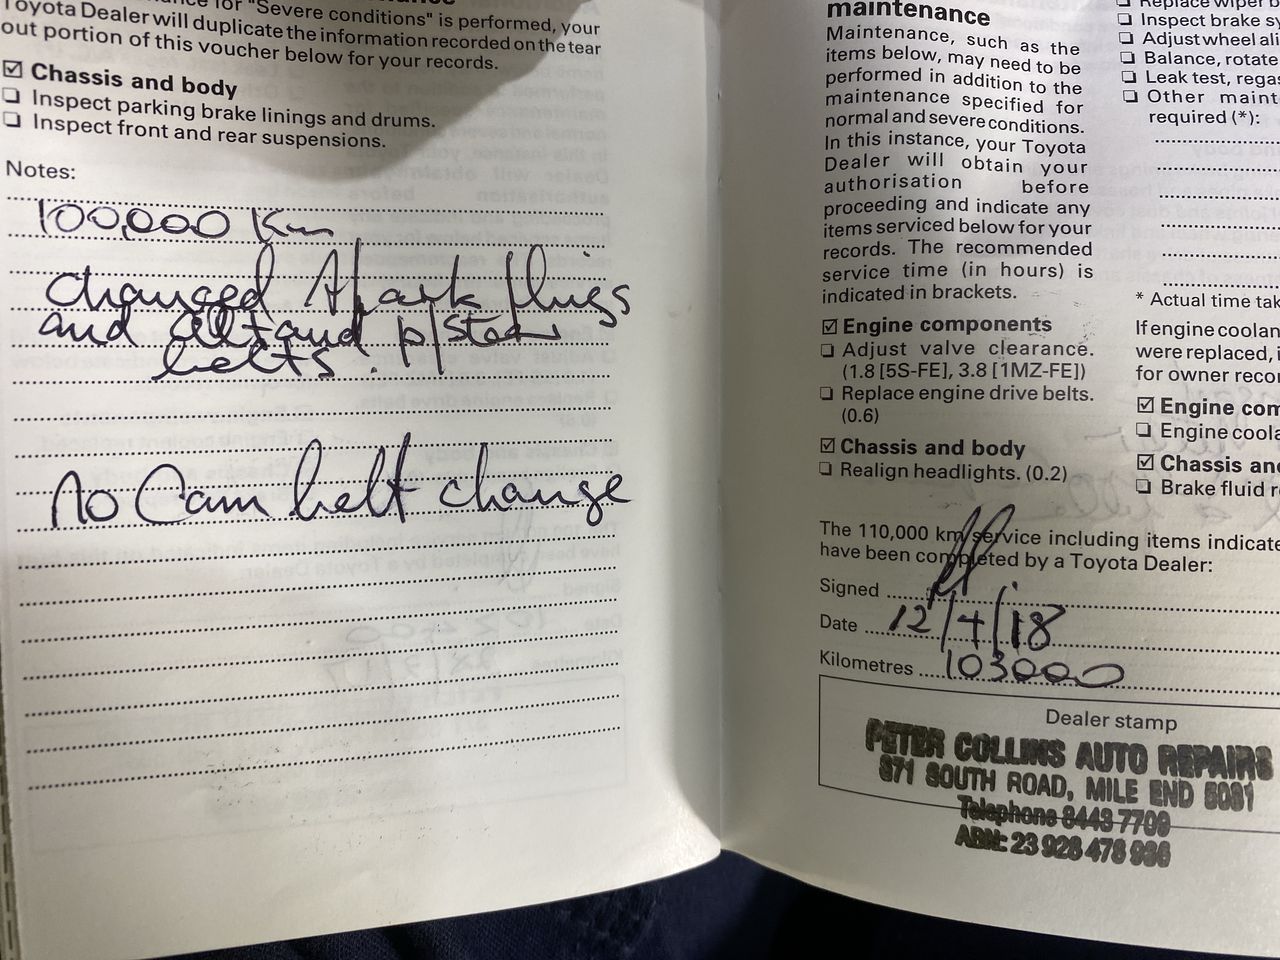 for "Severe conditions" is performed, your
Toyota Dealer will duplicate the information recorded on the tear
out portion of this voucher below for your records.
☑ Chassis and body
❏ Inspect parking brake linings and drums.
❏ Inspect front and rear suspensions.
Notes:
100,000 Km
changed Spark plugs
and alt and p/steer
belts.
No Cam belt change
maintenance
Maintenance, such as the
items below, may need to be
performed in addition to the
maintenance specified for
normal and severe conditions.
In this instance, your Toyota
Dealer will obtain your
authorisation before
proceeding and indicate any
items serviced below for your
records. The recommended
service time (in hours) is
indicated in brackets.
☑ Engine components
❏ Adjust valve clearance.
(1.8 [5S-FE], 3.8 [1MZ-FE])
❏ Replace engine drive belts.
(0.6)
☑ Chassis and body
❏ Realign headlights. (0.2)
The 110,000 km service including items indicate
have been completed by a Toyota Dealer:
Signed
Date 12/4/18
Kilometres 103000
Dealer stamp
PETER COLLINS AUTO REPAIRS
871 SOUTH ROAD, MILE END 5031
Telephone 8443 7709
ABN: 23 928 478 986
❏ Replace wiper b
❏ Inspect brake sy
❏ Adjust wheel ali
❏ Balance, rotate
❏ Leak test, regas
❏ Other maint
required (*):
* Actual time tak
If engine coolan
were replaced, i
for owner recor
☑ Engine com
❏ Engine coola
☑ Chassis and
❏ Brake fluid r